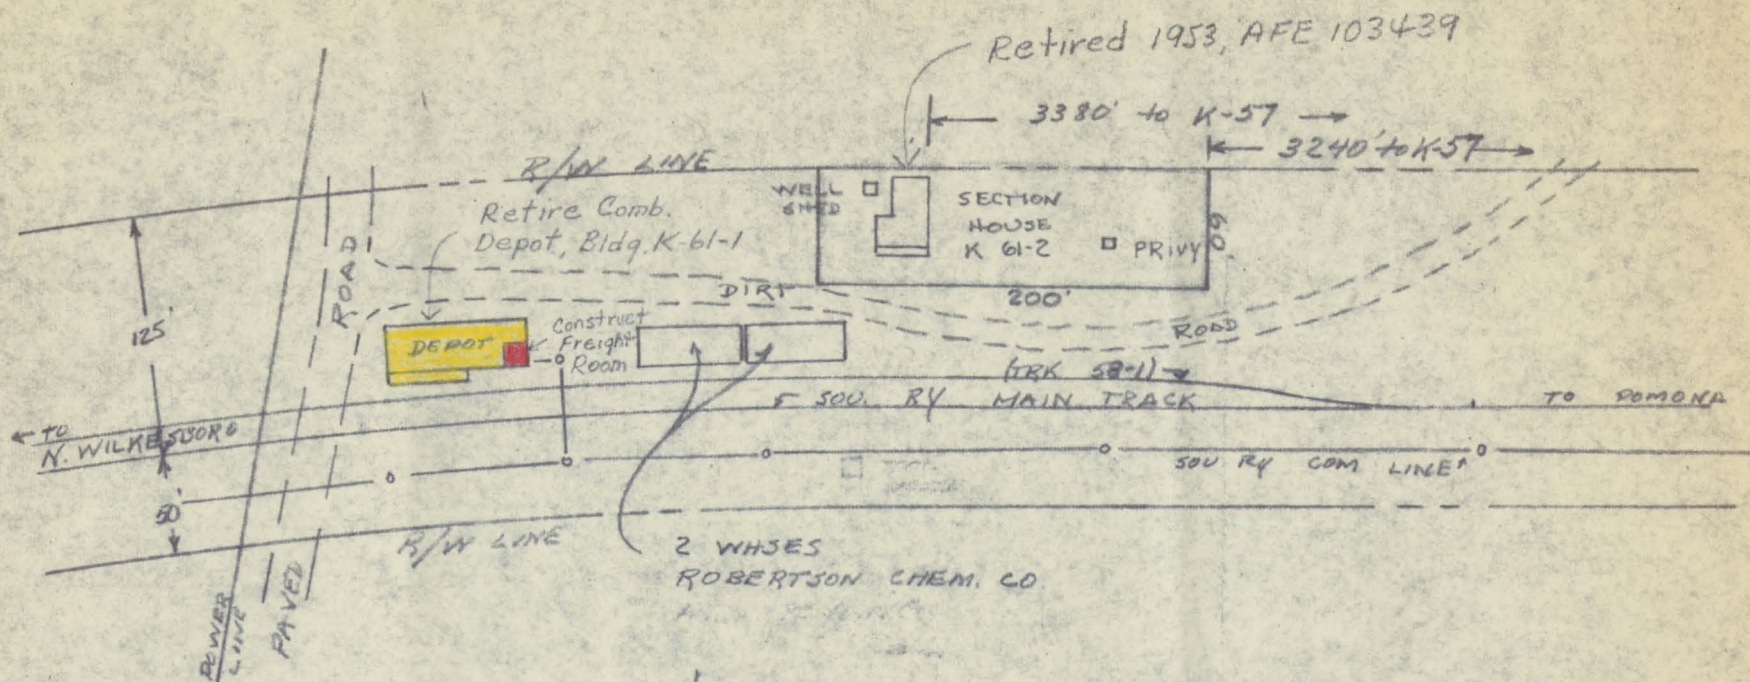 Retired 1953, AFE 103439
3380' to K-57
3240' to K-57
R/W LINE
WELL
SHED
SECTION
HOUSE
K 61-2
PRIVY
60'
Retire Comb.
Depot, Bldg. K-61-1
ROAD
125'
DIRT
200'
ROAD
DEPOT
Construct
Freight
Room
(TRK 58-1)
SOU. RY MAIN TRACK
TO POMONA
TO
N. WILKESBORO
SOU RY COM LINE
50'
R/W LINE
2 WHSES
ROBERTSON CHEM. CO.
POWER
LINE
PAVED